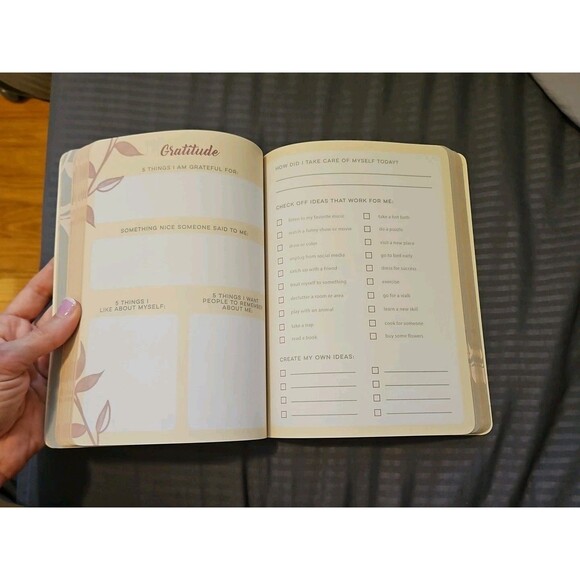 Gratitude
5 THINGS I AM GRATEFUL FOR:
SOMETHING NICE SOMEONE SAID TO ME:
5 THINGS I
LIKE ABOUT MYSELF:
5 THINGS I WANT
PEOPLE TO REMEMBER
ABOUT ME:
HOW DID I TAKE CARE OF MYSELF TODAY?
CHECK OFF IDEAS THAT WORK FOR ME:
listen to my favorite music
watch a funny show or movie
draw or color
unplug from social media
catch up with a friend
treat myself to something
declutter a room or area
play with an animal
take a nap
read a book
take a hot bath
do a puzzle
visit a new place
go to bed early
dance for
exercise
go for a walk
learn a new skill
cook for someone
buy some flowers
CREATE MY OWN IDEAS: